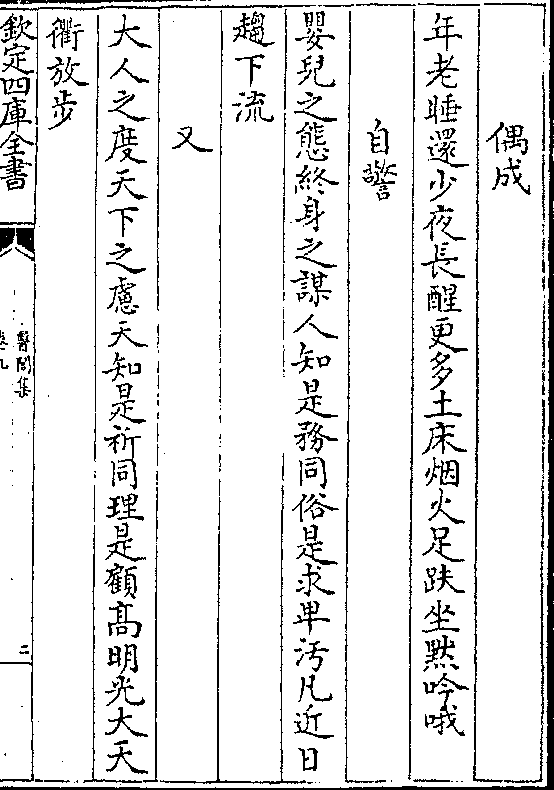 偶成
年老睡還少夜長醒更多土床烟火足趺坐黙吟哦
自警
嬰兒之態終身之謀人知是務同俗是求卑汚凡近日
趨下流
又
大人之度天下之慮天知是祈同理是顧髙明光大天
衢放步
欽定四庫全書
醫閭集
卷九
二